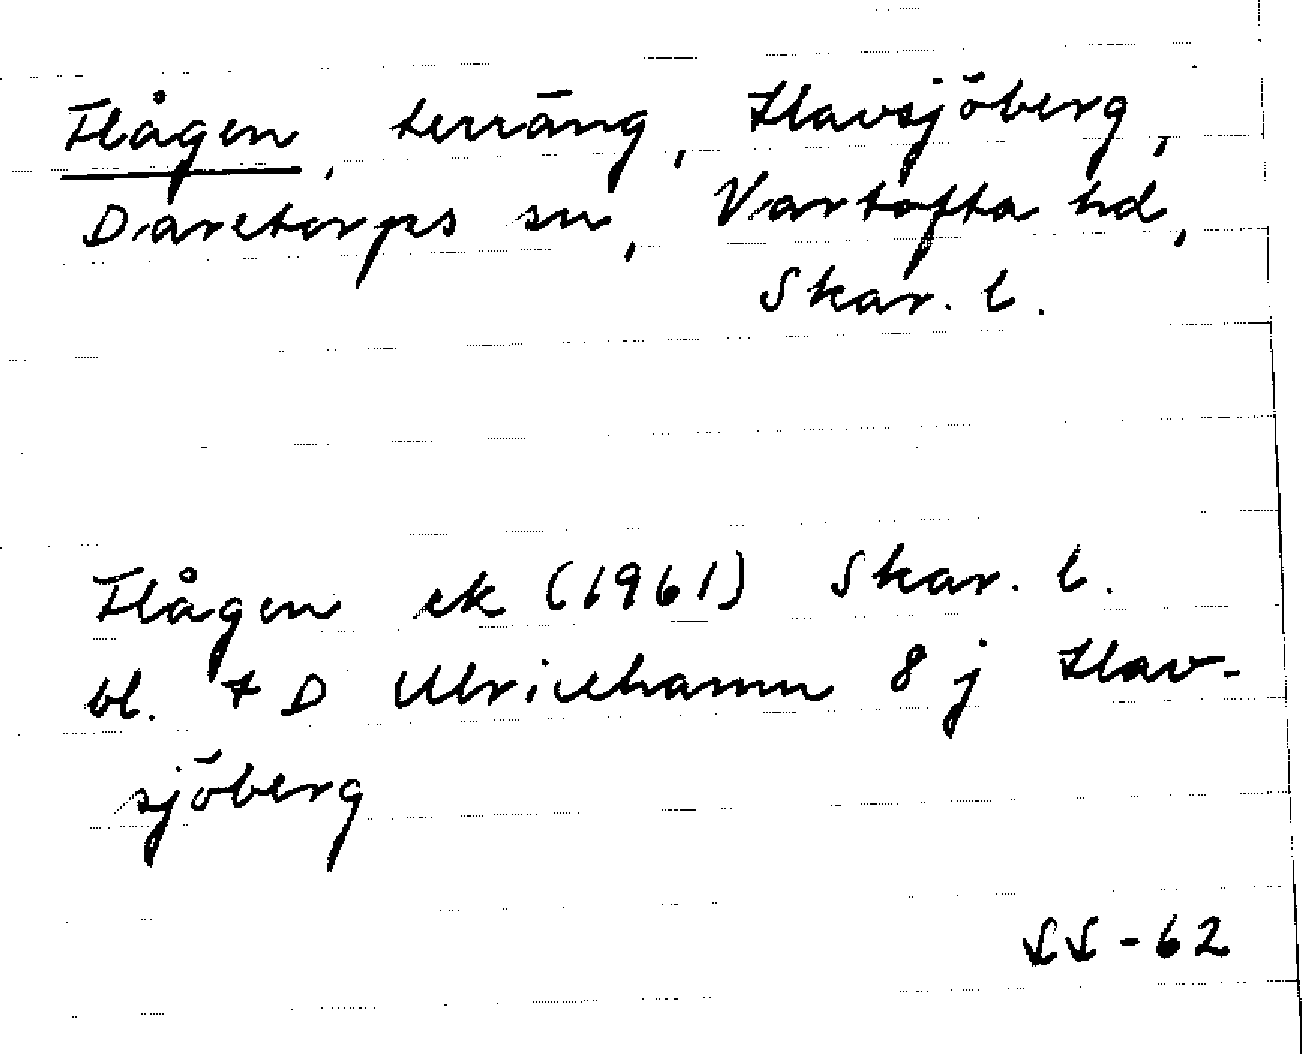 Flågen, terräng, Havsjöberg,
Daretorps sn, Vartofta hd,
Skar. l.
Flågen ek (1961) Skar. l.
bl. 7 D Ulricehamn 8 j Hav-
sjöberg
SS-62